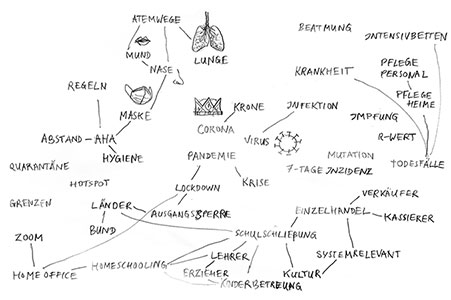 ATEMWEGE
BEATMUNG
INTENSIVBETTEN
MUND
LUNGE
NASE
PFLEGE
PERSONAL
KRANKHEIT
REGELN
PFLEGE
HEIME
MASKE
KRONE
INFEKTION
IMPFUNG
CORONA
ABSTAND – AHA
VIRUS
R-WERT
HYGIENE
PANDEMIE
MUTATION
TODESFÄLLE
QUARANTÄNE
7-TAGE INZIDENZ
HOTSPOT
LOCKDOWN
KRISE
GRENZEN
LÄNDER
VERKÄUFER
AUSGANGSSPERRE
EINZELHANDEL
KASSIERER
BUND
ZOOM
SCHULSCHLIEßUNG
LEHRER
SYSTEMRELEVANT
HOME OFFICE
HOMESCHOOLING
ERZIEHER
KULTUR
KINDERBETREUNG